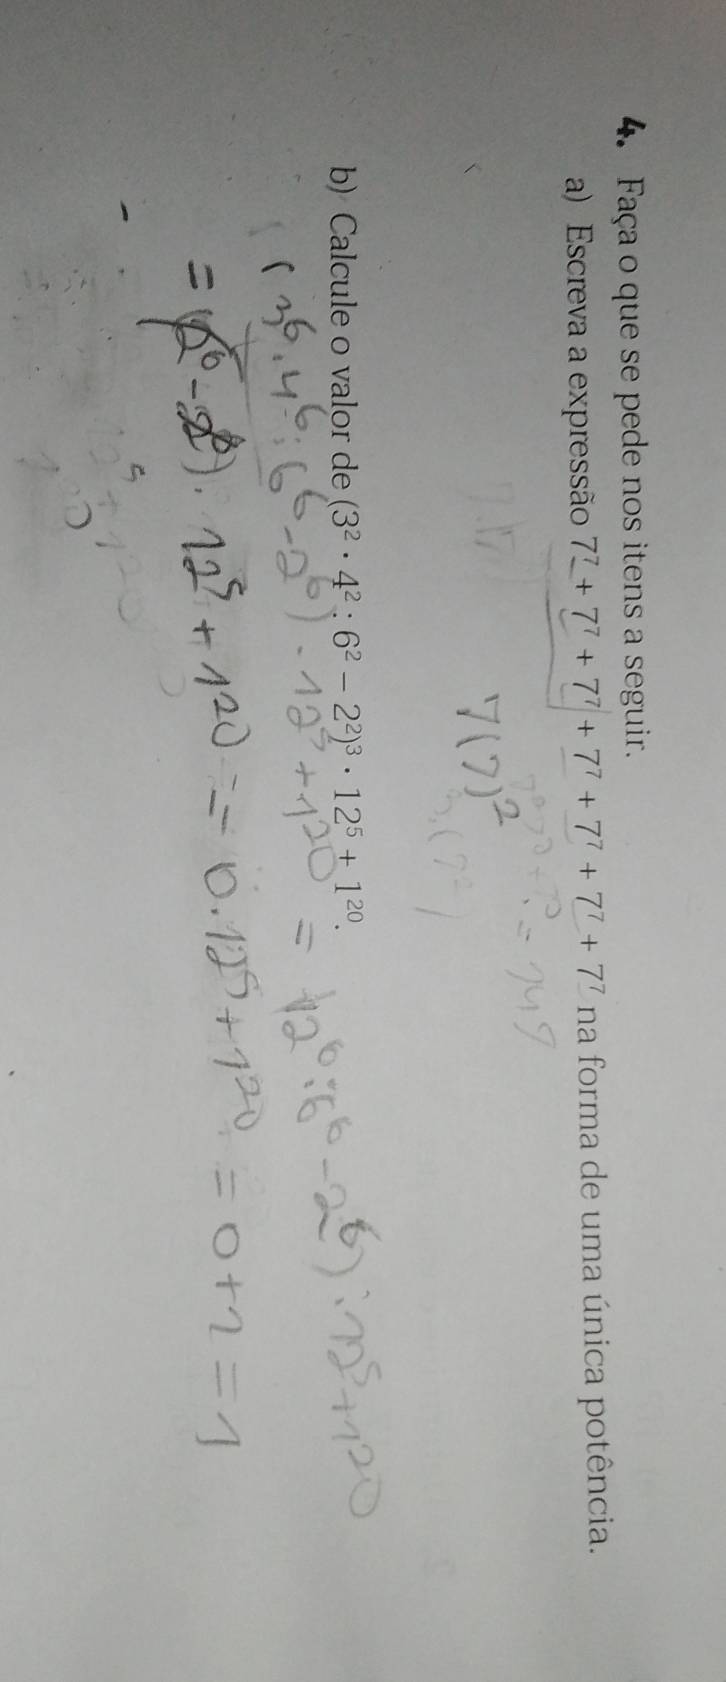 4. Faça o que se pede nos itens a seguir.
a) Escreva a expressão 7⁷ + 7⁷ + 7⁷ + 7⁷ + 7⁷ + 7⁷ + 7⁷ na forma de uma única potência.
7(7)²
b) Calcule o valor de (3² · 4² : 6² − 2²)³ · 12⁵ + 1²⁰.
(3⁶ · 4⁶ : 6⁶ − 2⁶) · 12⁵ + 1²⁰ = 12⁶ : 6⁶ − 2⁶) · 12⁵ + 1²⁰
= (2⁶ − 2⁶) · 12⁵ + 1²⁰ = 0 · 12⁵ + 1²⁰ = 0 + 1 = 1